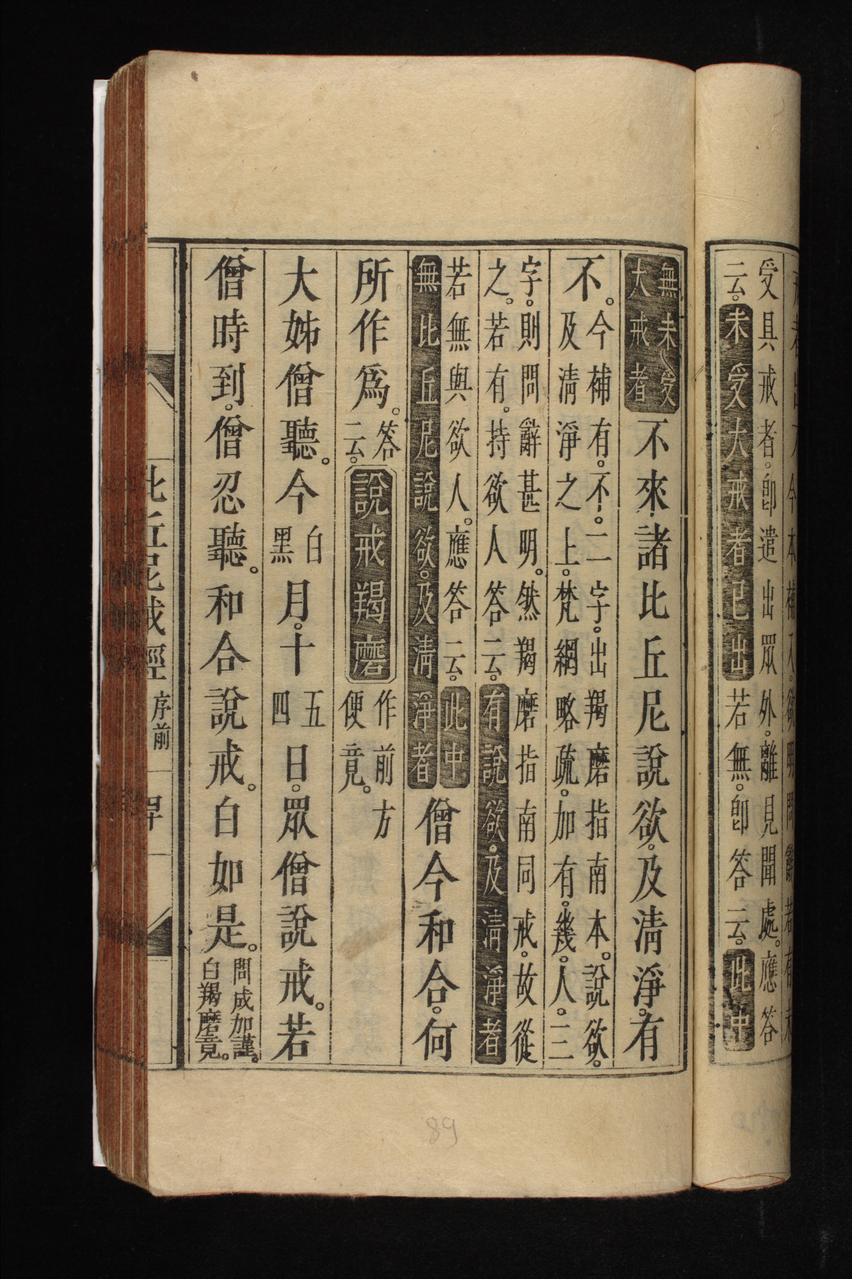 受具戒者。卽遣出眾外。離見聞處。應答
云。未受大戒者已出若無。卽答云。此中
無未受
大戒者
不來諸比丘尼說欲。及清淨。有
不。
今補有。不。二字。出羯磨指南本。說欲。
及清淨之上。梵網略疏。加有。幾。人。三
字。則問辭甚明。然羯磨指南同戒。故從
之。若有。持欲人答云。有說欲。及清淨者
若無與欲人。應答云。此中
無比丘尼說欲。及清淨者
僧今和合。何
所作爲。答云。說戒羯磨作前方便竟。
大姊僧聽。今白黑月。十五四日。眾僧說戒。若
僧時到。僧忍聽。和合說戒。白如是。問成加謹。白羯磨竟。
比丘尼戒經 序前
89